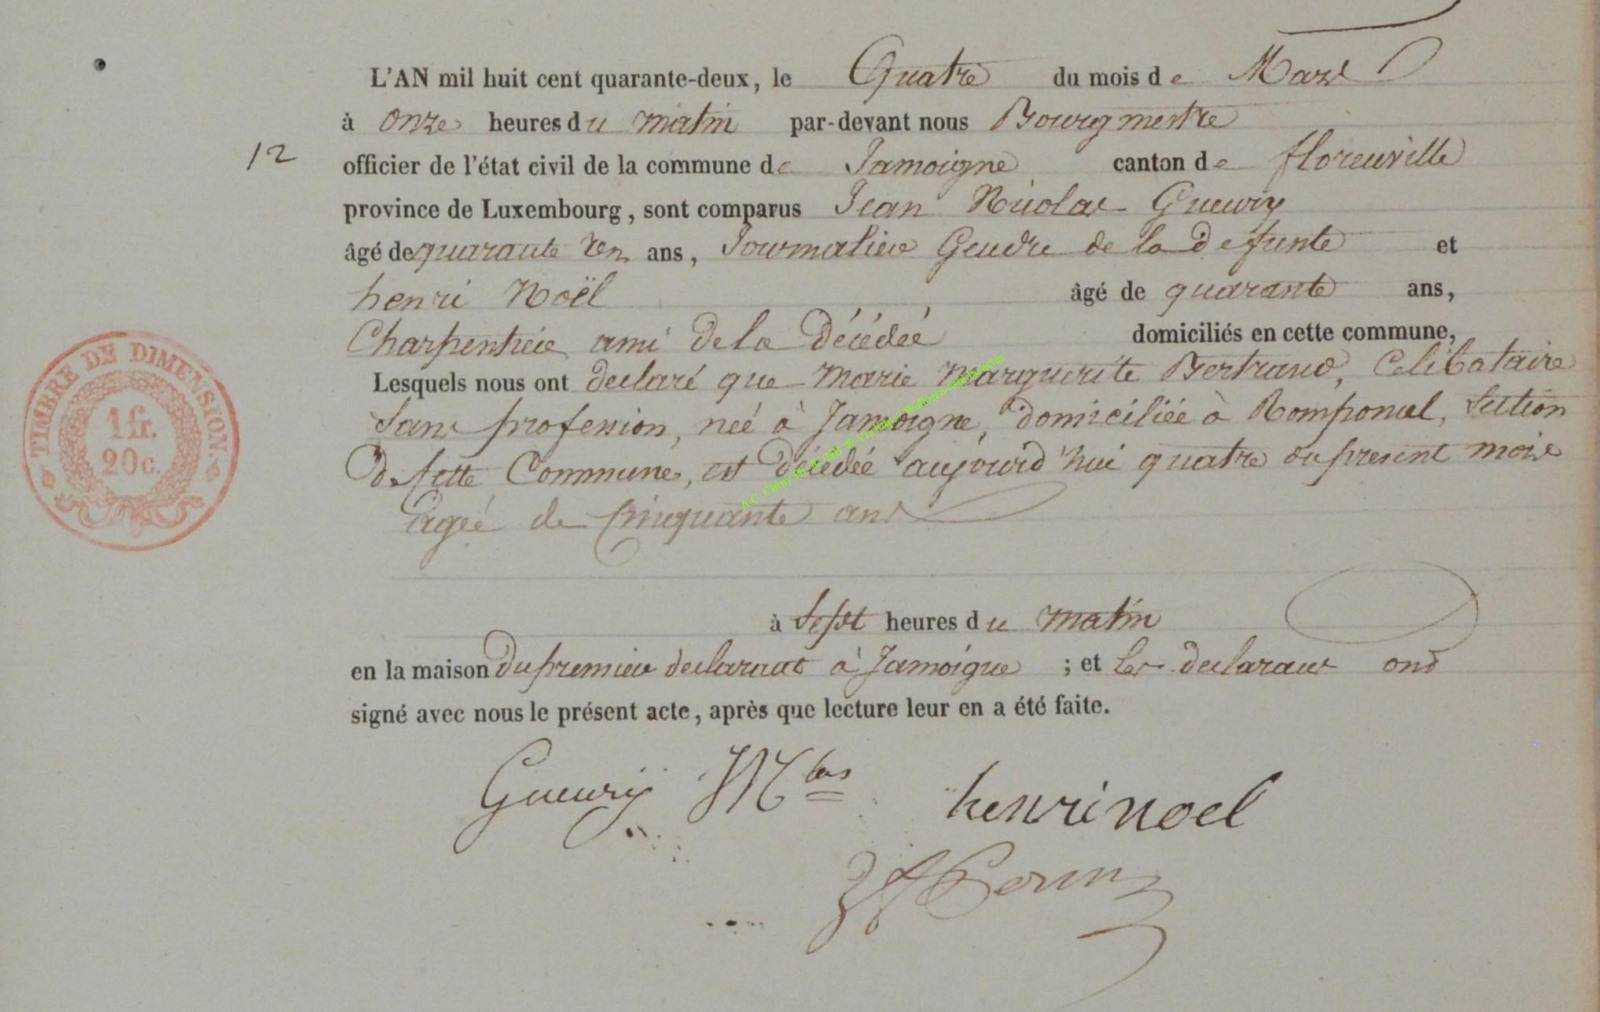 L'AN mil huit cent quarante-deux, le Quatre du mois de Mars
à onze heures du matin par-devant nous Bourgmestre
12
officier de l'état civil de la commune de Jamoigne canton de florenville
province de Luxembourg, sont comparus Jean Nicolas Gueury
âgé de quarante ans, Journalier Gendre de la défunte et
henri Noël âgé de quarante ans,
Charpentier ami de la décédée domiciliés en cette commune,
Lesquels nous ont declaré que Marie Marguerite Bertrand, Celibataire
Sans profession, née à Jamoigne, domiciliée à Romponcel, Section
de cette Commune, est décédée aujourd'hui quatre du present mois
agée de Cinquante ans
TIMBRE DE DIMENSION.
1 fr.
20 c.
à Sept heures du matin
en la maison du premier declarant à Jamoigne ; et les declarans ont
signé avec nous le présent acte, après que lecture leur en a été faite.
Gueury henri noel